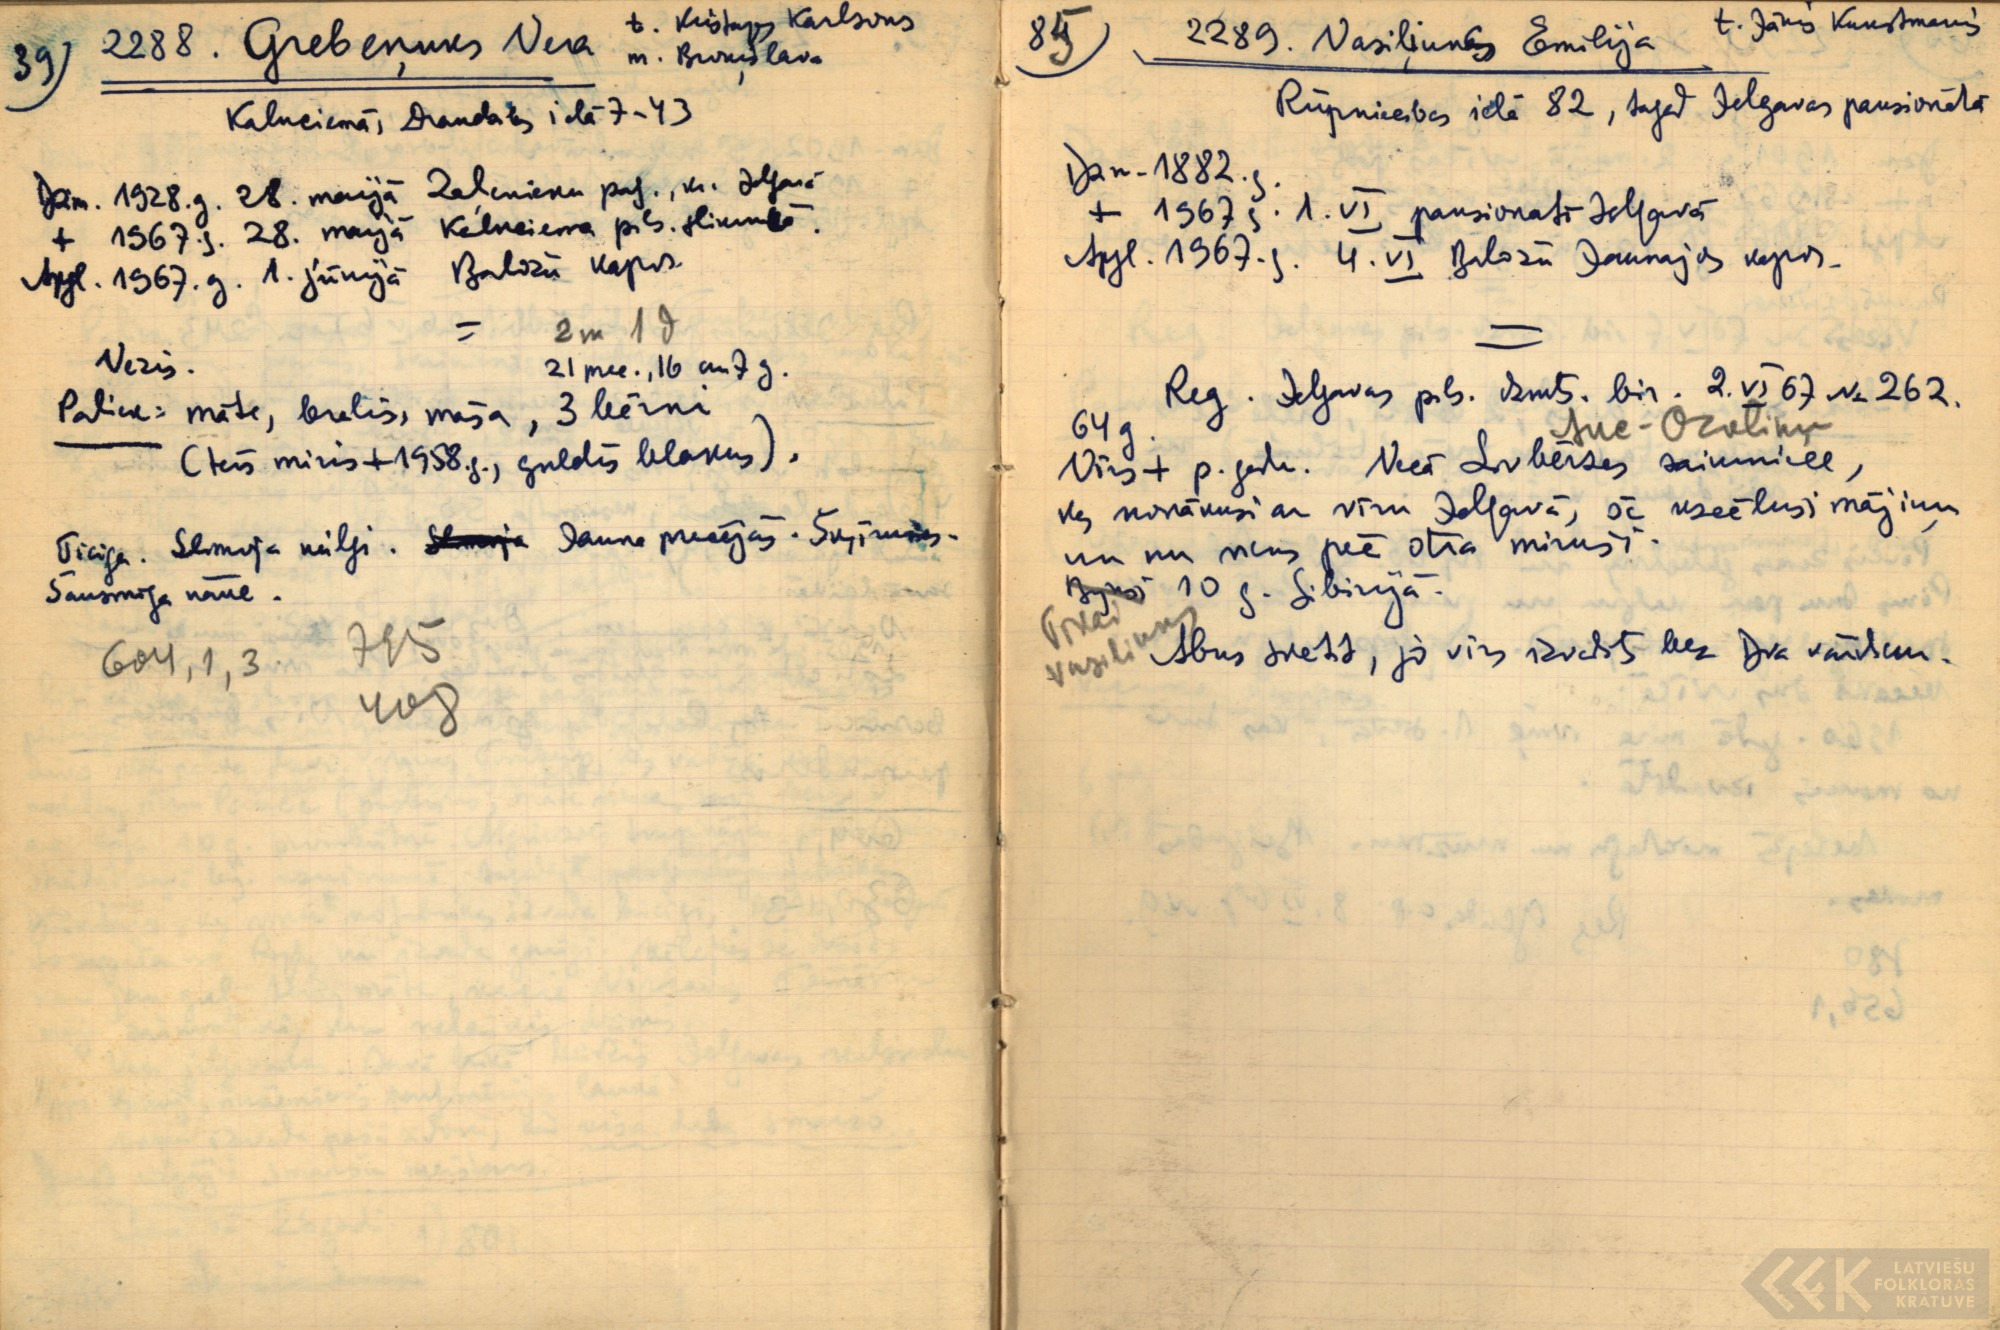 39) 2288. Grebeņuks Vera t. Kristaps Karlsons
m. Broņislava
Kalnciemā, Draudzības ielā 7-43
Dzim. 1928.g. 28. maijā Zaļenieku pag., kr. Jelgavā
+ 1967.g. 28. maijā Kalnciema pils. slimnīcā.
Apgl. 1967.g. 1. jūnijā Baložu kapos.
= 2 m 1 d
Vēzis. 21 prec., 16 un 7 g.
Paliek: māte, brālis, māsa, 3 bērni
(tēvs miris + 1958.g., guldīs blakus).
Ticīga. Slimoja neilgi. Jauna precējās. Šķīrusies.
Šausmīga nāve.
604,1,3 795
408
85) 2289. Vasiļjunas Emilija t. Jānis Kunstmanis
Rūpniecības ielā 82, tagad Jelgavas pansionātā
Dzim. 1882.g.
+ 1967.g. 1. VI pansionātā Jelgavā
Apgl. 1967.g. 4. VI Baložu Jaunajos kapos.
=
Reg. Jelgavas pils. dzimts. bir. 2. VI 67 № 262.
64 g. Auc-Ozoliņu
Vīrs + p. gadu. Vecā Līvbērzes saimniece,
kas nonākusi ar vīru Jelgavā, uzcēlusi mājiņu
un nu viens pēc otra miruši.
10 g. Sibirijā.
Vasiliunas
Abus svētī, jo vīrs izvadīts bez Dva vārdiem.
LATVIEŠU
FOLKLORAS
KRATUVE